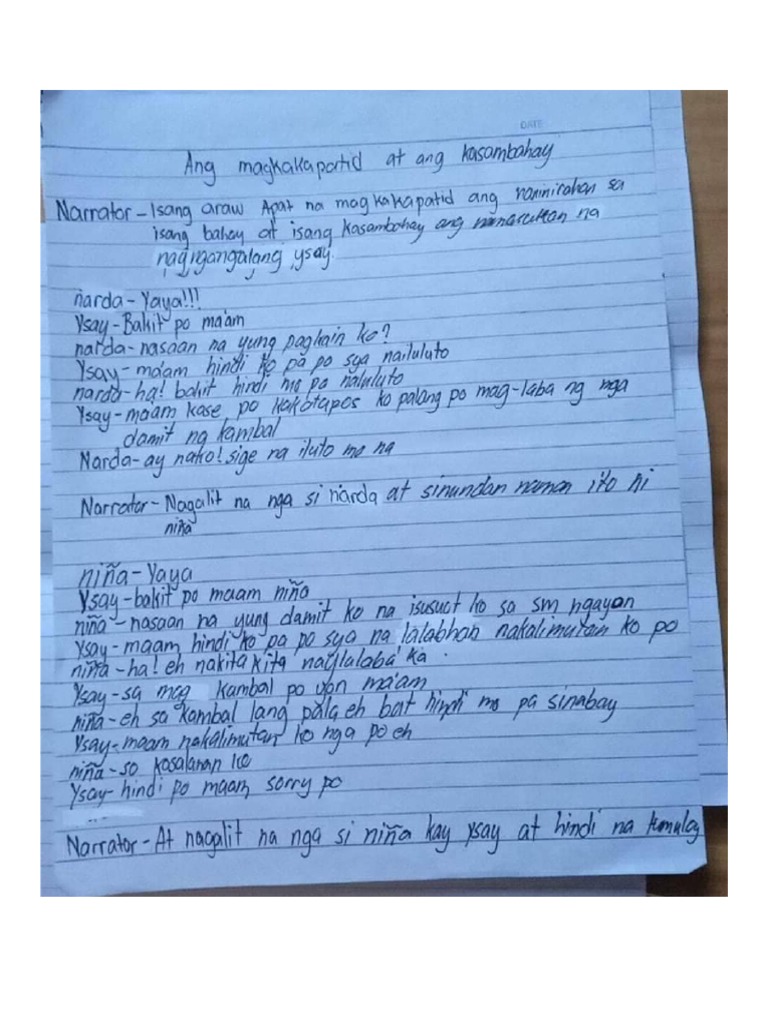 DATE
Ang magkakapatid at ang kasambahay
Narrator - Isang araw Apat na magkakapatid ang naninirahan sa
isang bahay at isang kasambahay ang na
nagngangalang ysay.
narda - Yaya!!!
Ysay - Bakit po ma'am
narda - nasaan na yung pagkain ko?
Ysay - ma'am hindi ko pa po sya nailuluto
narda - ha! bakit hindi mo pa naluluto
Ysay - maam kase po kakatapos ko palang po mag-laba ng mga
damit ng kambal
Narda - ay nako! sige na iluto mo na
Narrator - Nagalit na nga si narda at sinundan naman ito ni
niña
niña - Yaya
Ysay - bakit po maam niña
niña - nasaan na yung damit ko na isusuot ko sa sm ngayan
Ysay - maam hindi ko pa po sya na lalabhan nakalimutan ko po
niña - ha! eh nakita kita naglalaba ka.
Ysay - sa mag kambal po yon ma'am
niña - eh sa kambal lang pala eh bat hindi mo pa sinabay
Ysay - maam nakalimutan ko nga po eh
niña - so kasalanan ko
Ysay - hindi po maam, sorry po
Narrator - At nagalit na nga si niña kay ysay at hindi na tumuloy